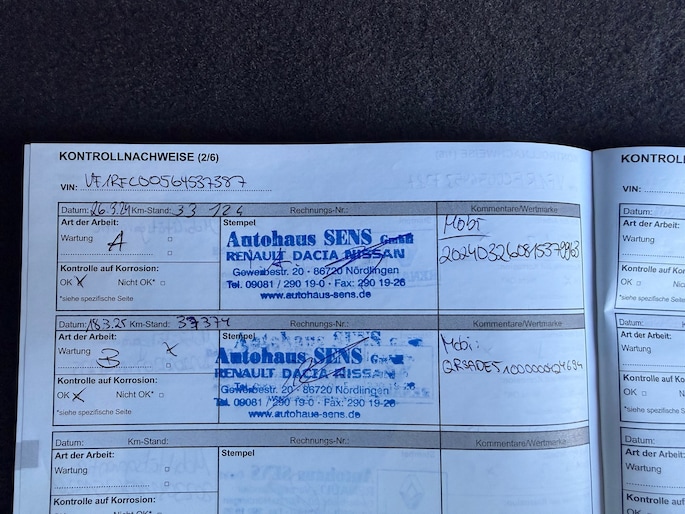 KONTROLLNACHWEISE (2/6)
VIN: VF1RFC00564537387
Datum: 26.3.24 Km-Stand: 33 124 Rechnungs-Nr.: Kommentare/Wertmarke
Art der Arbeit: Stempel Mobi
Wartung A Autohaus SENS GmbH 202403260815379963
RENAULT DACIA NISSAN
Kontrolle auf Korrosion: Gewerbestr. 20 · 86720 Nördlingen
OK X Nicht OK* Tel. 09081 / 290 19-0 · Fax: 290 19-26
*siehe spezifische Seite www.autohaus-sens.de
Datum: 18.3.25 Km-Stand: 37374 Rechnungs-Nr.: Kommentare/Wertmarke
Art der Arbeit: Stempel Mobi:
Wartung B X Autohaus SENS GmbH
RENAULT DACIA NISSAN
Kontrolle auf Korrosion: Gewerbestr. 20 · 86720 Nördlingen
OK X Nicht OK* Tel. 09081 / 290 19-0 · Fax: 290 19-26
*siehe spezifische Seite www.autohaus-sens.de
Datum: Km-Stand: Rechnungs-Nr.: Kommentare/Wertmarke
Art der Arbeit: Stempel
Wartung
Kontrolle auf Korrosion:
KONTROL
VIN:
Datum:
Art der Arbeit:
Wartung
Kontrolle auf Ko
OK
*siehe spezifische S
Datum:
Art der Arbeit:
Wartung
Kontrolle auf Ko
OK
*siehe spezifische S
Datum:
Art der Arbeit:
Wartung
Kontrolle auf